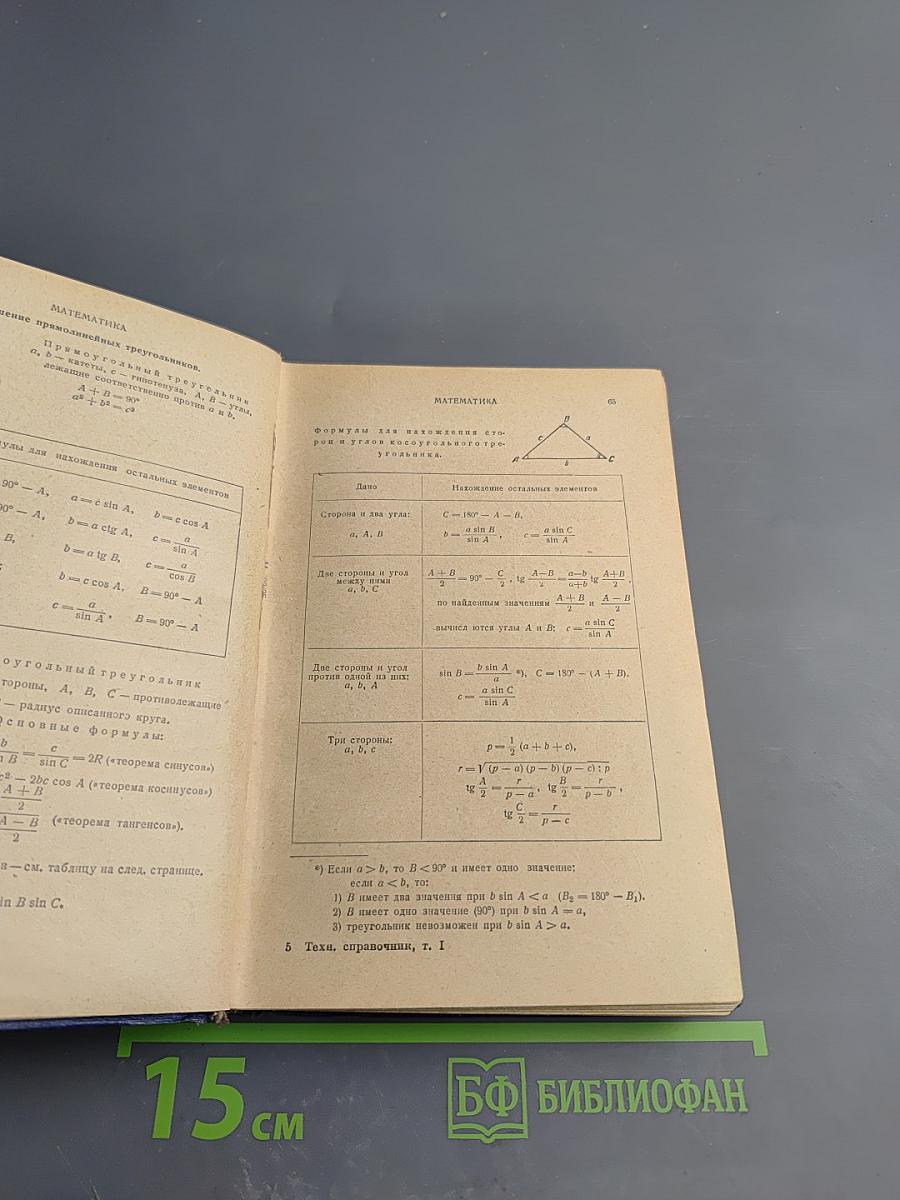 МАТЕМАТИКА
прямолинейных треугольников.
Прямоугольный треугольник
a, b — катеты, c — гипотенуза, A, B — углы,
лежащие соответственно против a и b.
A + B = 90°
a² + b² = c²
для нахождения остальных элементов
90° — A, a = c sin A, b = c cos A
90° — A, b = a ctg A, c = a / sin A
B, b = a tg B, c = a / cos B
b = c cos A, B = 90° — A
c = a / sin A, B = 90° — A
треугольник
A, B, C — противолежащие
— радиус описанного круга.
Основные формулы:
= c / sin C = 2R («теорема синусов»)
c² — 2bc cos A («теорема косинусов»)
A + B / 2
A — B / 2 («теорема тангенсов»).
— см. таблицу на след. странице.
sin B sin C.
МАТЕМАТИКА 65
Формулы для нахождения сто-
рон и углов косоугольного тре-
угольника.
B
c a
A b C
Дано Нахождение остальных элементов
Сторона и два угла: C = 180° — A — B,
a, A, B b = a sin B / sin A, c = a sin C / sin A
Две стороны и угол
между ними
a, b, C
A + B / 2 = 90° — C / 2, tg A—B / 2 = a—b / a+b tg A+B / 2,
по найденным значениям A + B / 2 и A — B / 2
вычисляются углы A и B; c = a sin C / sin A
Две стороны и угол
против одной из них:
a, b, A
sin B = b sin A / a *), C = 180° — (A + B).
c = a sin C / sin A
Три стороны:
a, b, c
p = 1/2 (a + b + c),
r = √(p — a) (p — b) (p — c) : p
tg A/2 = r / p — a, tg B/2 = r / p — b,
tg C/2 = r / p — c
*) Если a > b, то B < 90° и имеет одно значение;
если a < b, то:
1) B имеет два значения при b sin A < a (B₂ = 180° — B₁).
2) B имеет одно значение (90°) при b sin A = a,
3) треугольник невозможен при b sin A > a.
5 Техн. справочник, т. I
15 см
БФ БИБЛИОФАН